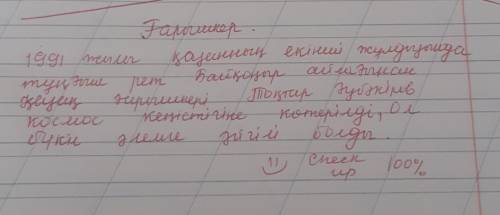 Ғарышкер.
1991 жылы қазанның екінші жұлдызында
тұңғыш рет Байқоңыр аймағынан
қазақ ғарышкері Тоқтар Әубәкіров
космос кеңістігіне көтерілді, Ол
бүкіл әлемге әйгілі болды.
Check
up 100%